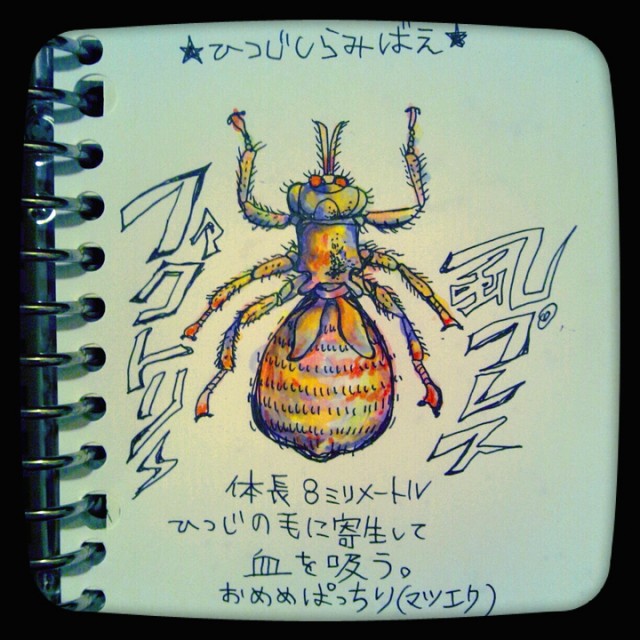 ★ひつじしらみばえ★
プレス
体長 8ミリメートル
ひつじの毛に寄生して
血を吸う。
おめめぱっちり(マツエク)